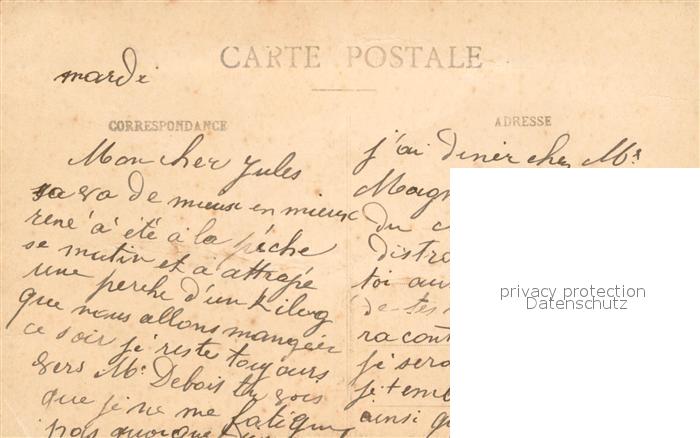 CARTE POSTALE
mardi
CORRESPONDANCE
Mon cher Jules
sa va de mieux en mieux
rené à été à la pêche
se matin et à attrapé
une perche d'un kilog
que nous allons manger
ce soir je reste toujours
vers Mr Debois tu vois
que je ne me fatigue
pas quoique
ADRESSE
j'ai diner chez Mr
Magn
du c
distra
toi au
de tes
racont
je sera
je t'em
ainsi q
privacy protection
Datenschutz